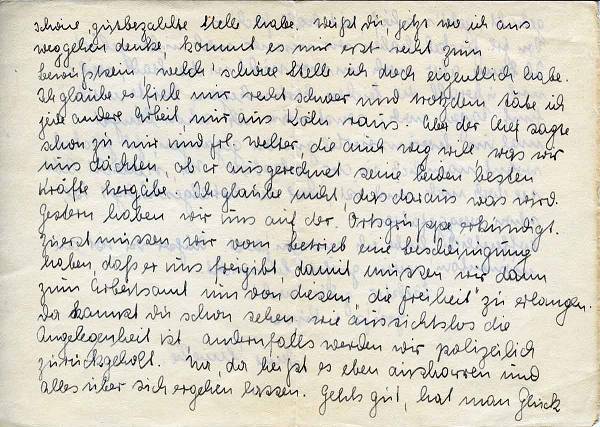 schöne, gutbezahlte Stelle habe. Weißt du, jetzt wo ich ans
weggehen denke, kommt es mir erst recht zum
bewußtsein, welch' schöne Stelle ich doch eigentlich habe.
Ich glaube es fiele mir recht schwer und trotzdem täte ich
jede andere Arbeit, nur aus Köln raus. Aber der Chef sagte
schon zu mir und Frl. Welter, die auch weg will was wir
uns dächten, ob er ausgerechnet seine beiden besten
Kräfte hergäbe. Ich glaube nicht, das daraus was wird.
Gestern haben wir uns auf der Ortsgruppe erkundigt.
Zuerst müssen wir vom betrieb eine bescheinigung
haben, daß er uns freigibt, damit müssen wir dann
zum Arbeitsamt um von diesem, die Freiheit zu erlangen.
Da kannst du schon sehen wie aussichtslos die
Angelegenheit ist, andernfalls werden wir polizeilich
zurückgeholt. Na, da heißt es eben ausharren und
alles über sich ergehen lassen. Gehts gut, hat man Glück